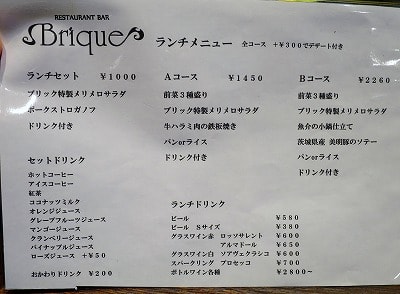 RESTAURANT BAR
Brique
ランチメニュー 全コース +¥300でデザート付き
ランチセット ¥1000
ブリック特製メリメロサラダ
ポークストロガノフ
ドリンク付き
Aコース ¥1450
前菜3種盛り
ブリック特製メリメロサラダ
牛ハラミ肉の鉄板焼き
パンorライス
ドリンク付き
Bコース ¥2260
前菜3種盛り
ブリック特製メリメロサラダ
魚介の小鍋仕立て
茨城県産 美明豚のソテー
パンorライス
ドリンク付き
セットドリンク
ホットコーヒー
アイスコーヒー
紅茶
ココナッツミルク
オレンジジュース
グレープフルーツジュース
マンゴージュース
クランベリージュース
パイナップルジュース
ローズジュース +¥50
おかわりドリンク ¥200
ランチドリンク
ビール ¥580
ビール Sサイズ ¥380
グラスワイン赤 ロッソサレント ¥600
アルマドール ¥650
グラスワイン白 ソアヴェクラシコ ¥600
スパークリング プロセッコ ¥700
ボトルワイン各種 ¥2800~